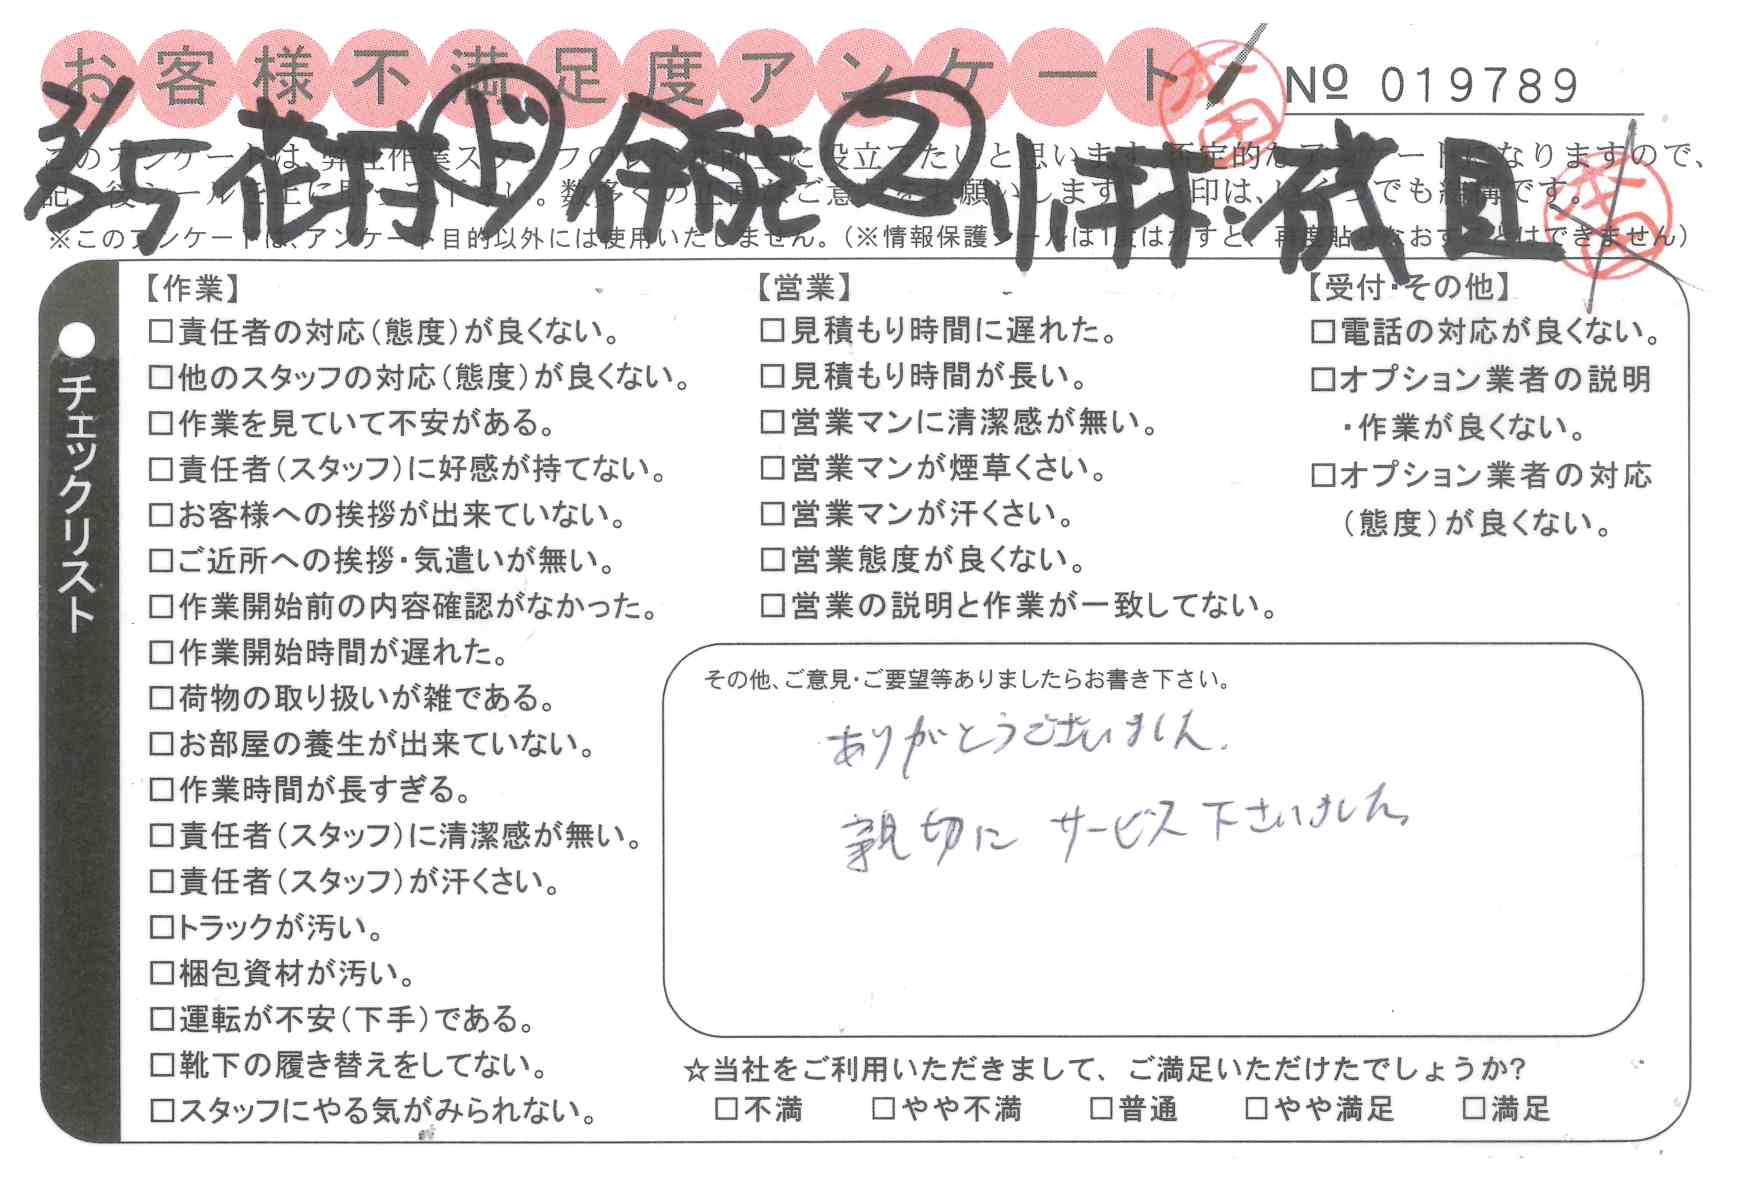 お客様不満足度アンケート
№ 019789
3/5 花村 ド 伊能 ② 小林 磯 直
このアンケートは、弊社作業スタッフの に役立てたいと思います 否定的なアンケートになりますので、
記 後シールを上に貼って下さい。数多くの正直なご意見をお願いします 印は、いくつでも結構です。
※このアンケートは、アンケート目的以外には使用いたしません。（※情報保護シールは1度はがすと、再度貼りなおすことはできません）
●チェックリスト
【作業】
□責任者の対応（態度）が良くない。
□他のスタッフの対応（態度）が良くない。
□作業を見ていて不安がある。
□責任者（スタッフ）に好感が持てない。
□お客様への挨拶が出来ていない。
□ご近所への挨拶・気遣いが無い。
□作業開始前の内容確認がなかった。
□作業開始時間が遅れた。
□荷物の取り扱いが雑である。
□お部屋の養生が出来ていない。
□作業時間が長すぎる。
□責任者（スタッフ）に清潔感が無い。
□責任者（スタッフ）が汗くさい。
□トラックが汚い。
□梱包資材が汚い。
□運転が不安（下手）である。
□靴下の履き替えをしてない。
□スタッフにやる気がみられない。
【営業】
□見積もり時間に遅れた。
□見積もり時間が長い。
□営業マンに清潔感が無い。
□営業マンが煙草くさい。
□営業マンが汗くさい。
□営業態度が良くない。
□営業の説明と作業が一致してない。
【受付・その他】
□電話の対応が良くない。
□オプション業者の説明
・作業が良くない。
□オプション業者の対応
（態度）が良くない。
その他、ご意見・ご要望等ありましたらお書き下さい。
ありがとうございました.
親切に サービス下さいました。
☆当社をご利用いただきまして、ご満足いただけたでしょうか？
□不満 □やや不満 □普通 □やや満足 □満足